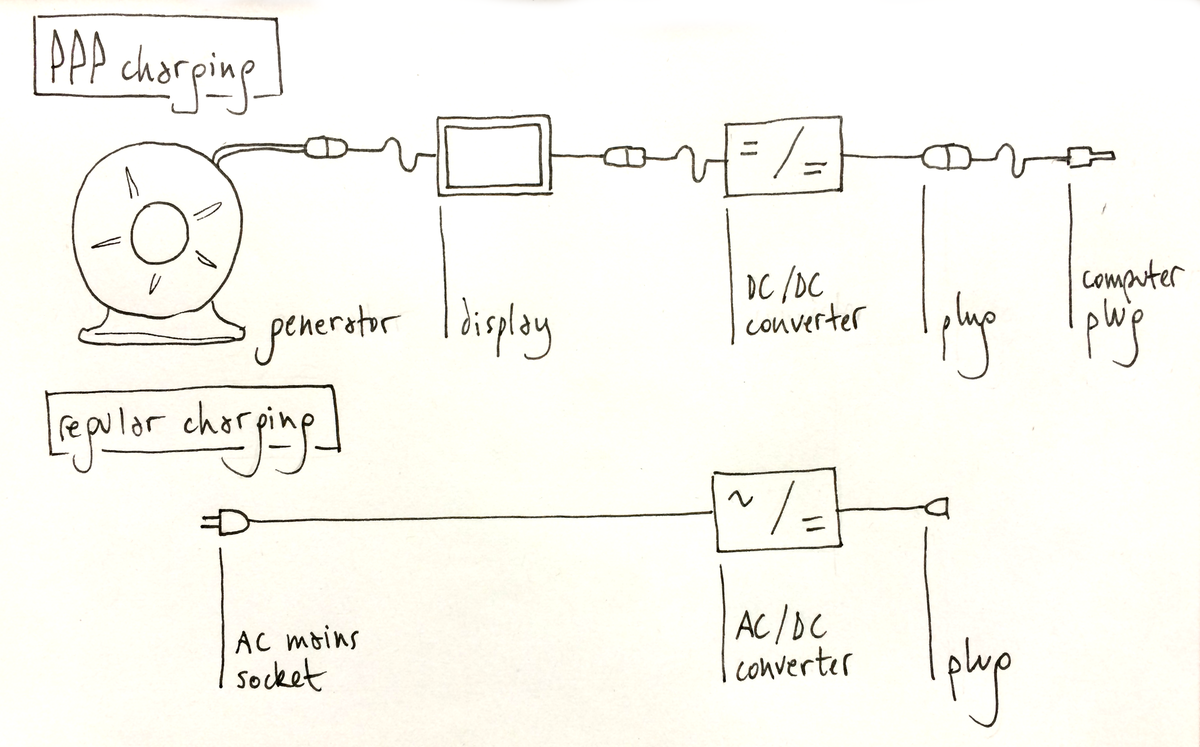 PPP charging
generator
display
DC/DC
converter
plug
computer
plug
regular charging
AC mains
socket
AC/DC
converter
plug